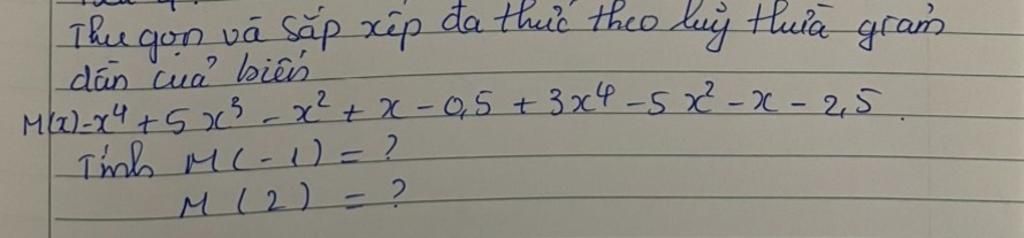 Thu gọn và sắp xếp đa thức theo luỹ thừa giảm
dần của biến
M(x)=x⁴ + 5x³ - x² + x - 0,5 + 3x⁴ - 5x² - x - 2,5.
Tính M(-1) = ?
M(2) = ?